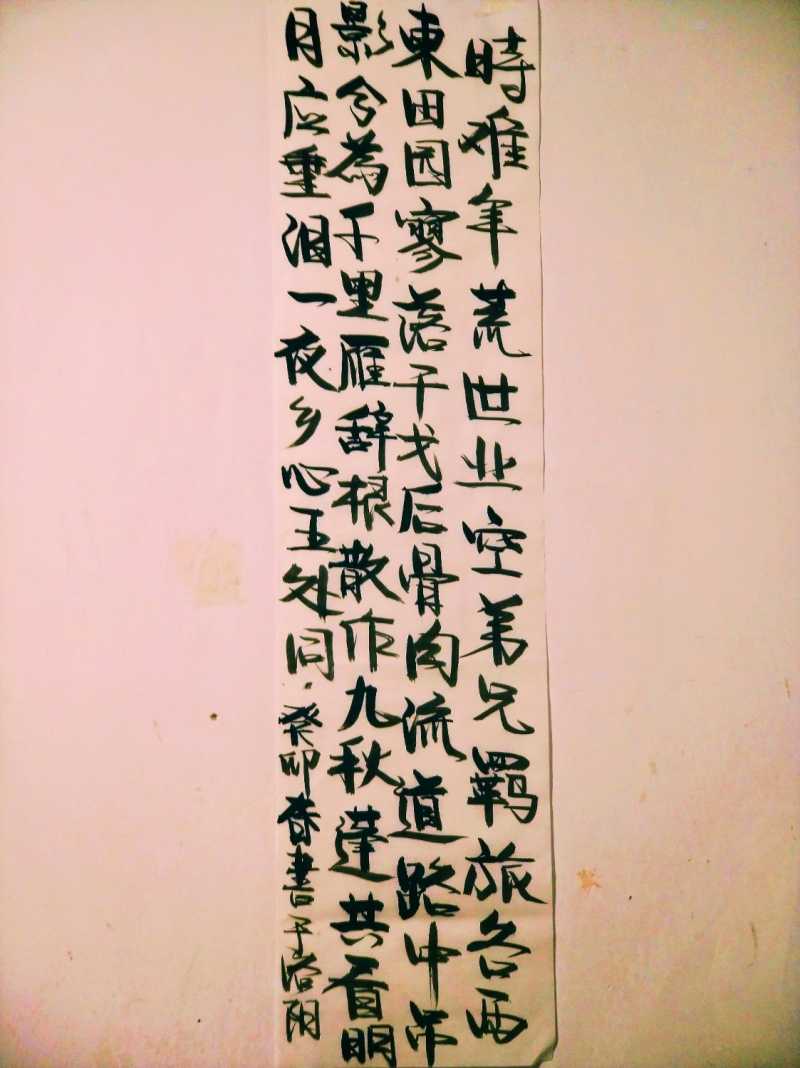 時难年荒世业空弟兄羈旅各西
東田园寥落干戈后骨肉流道路中吊
影分為千里雁辞根散作九秋蓬共看明
月应垂泪一夜乡心五处同.癸卯春書于洛阳